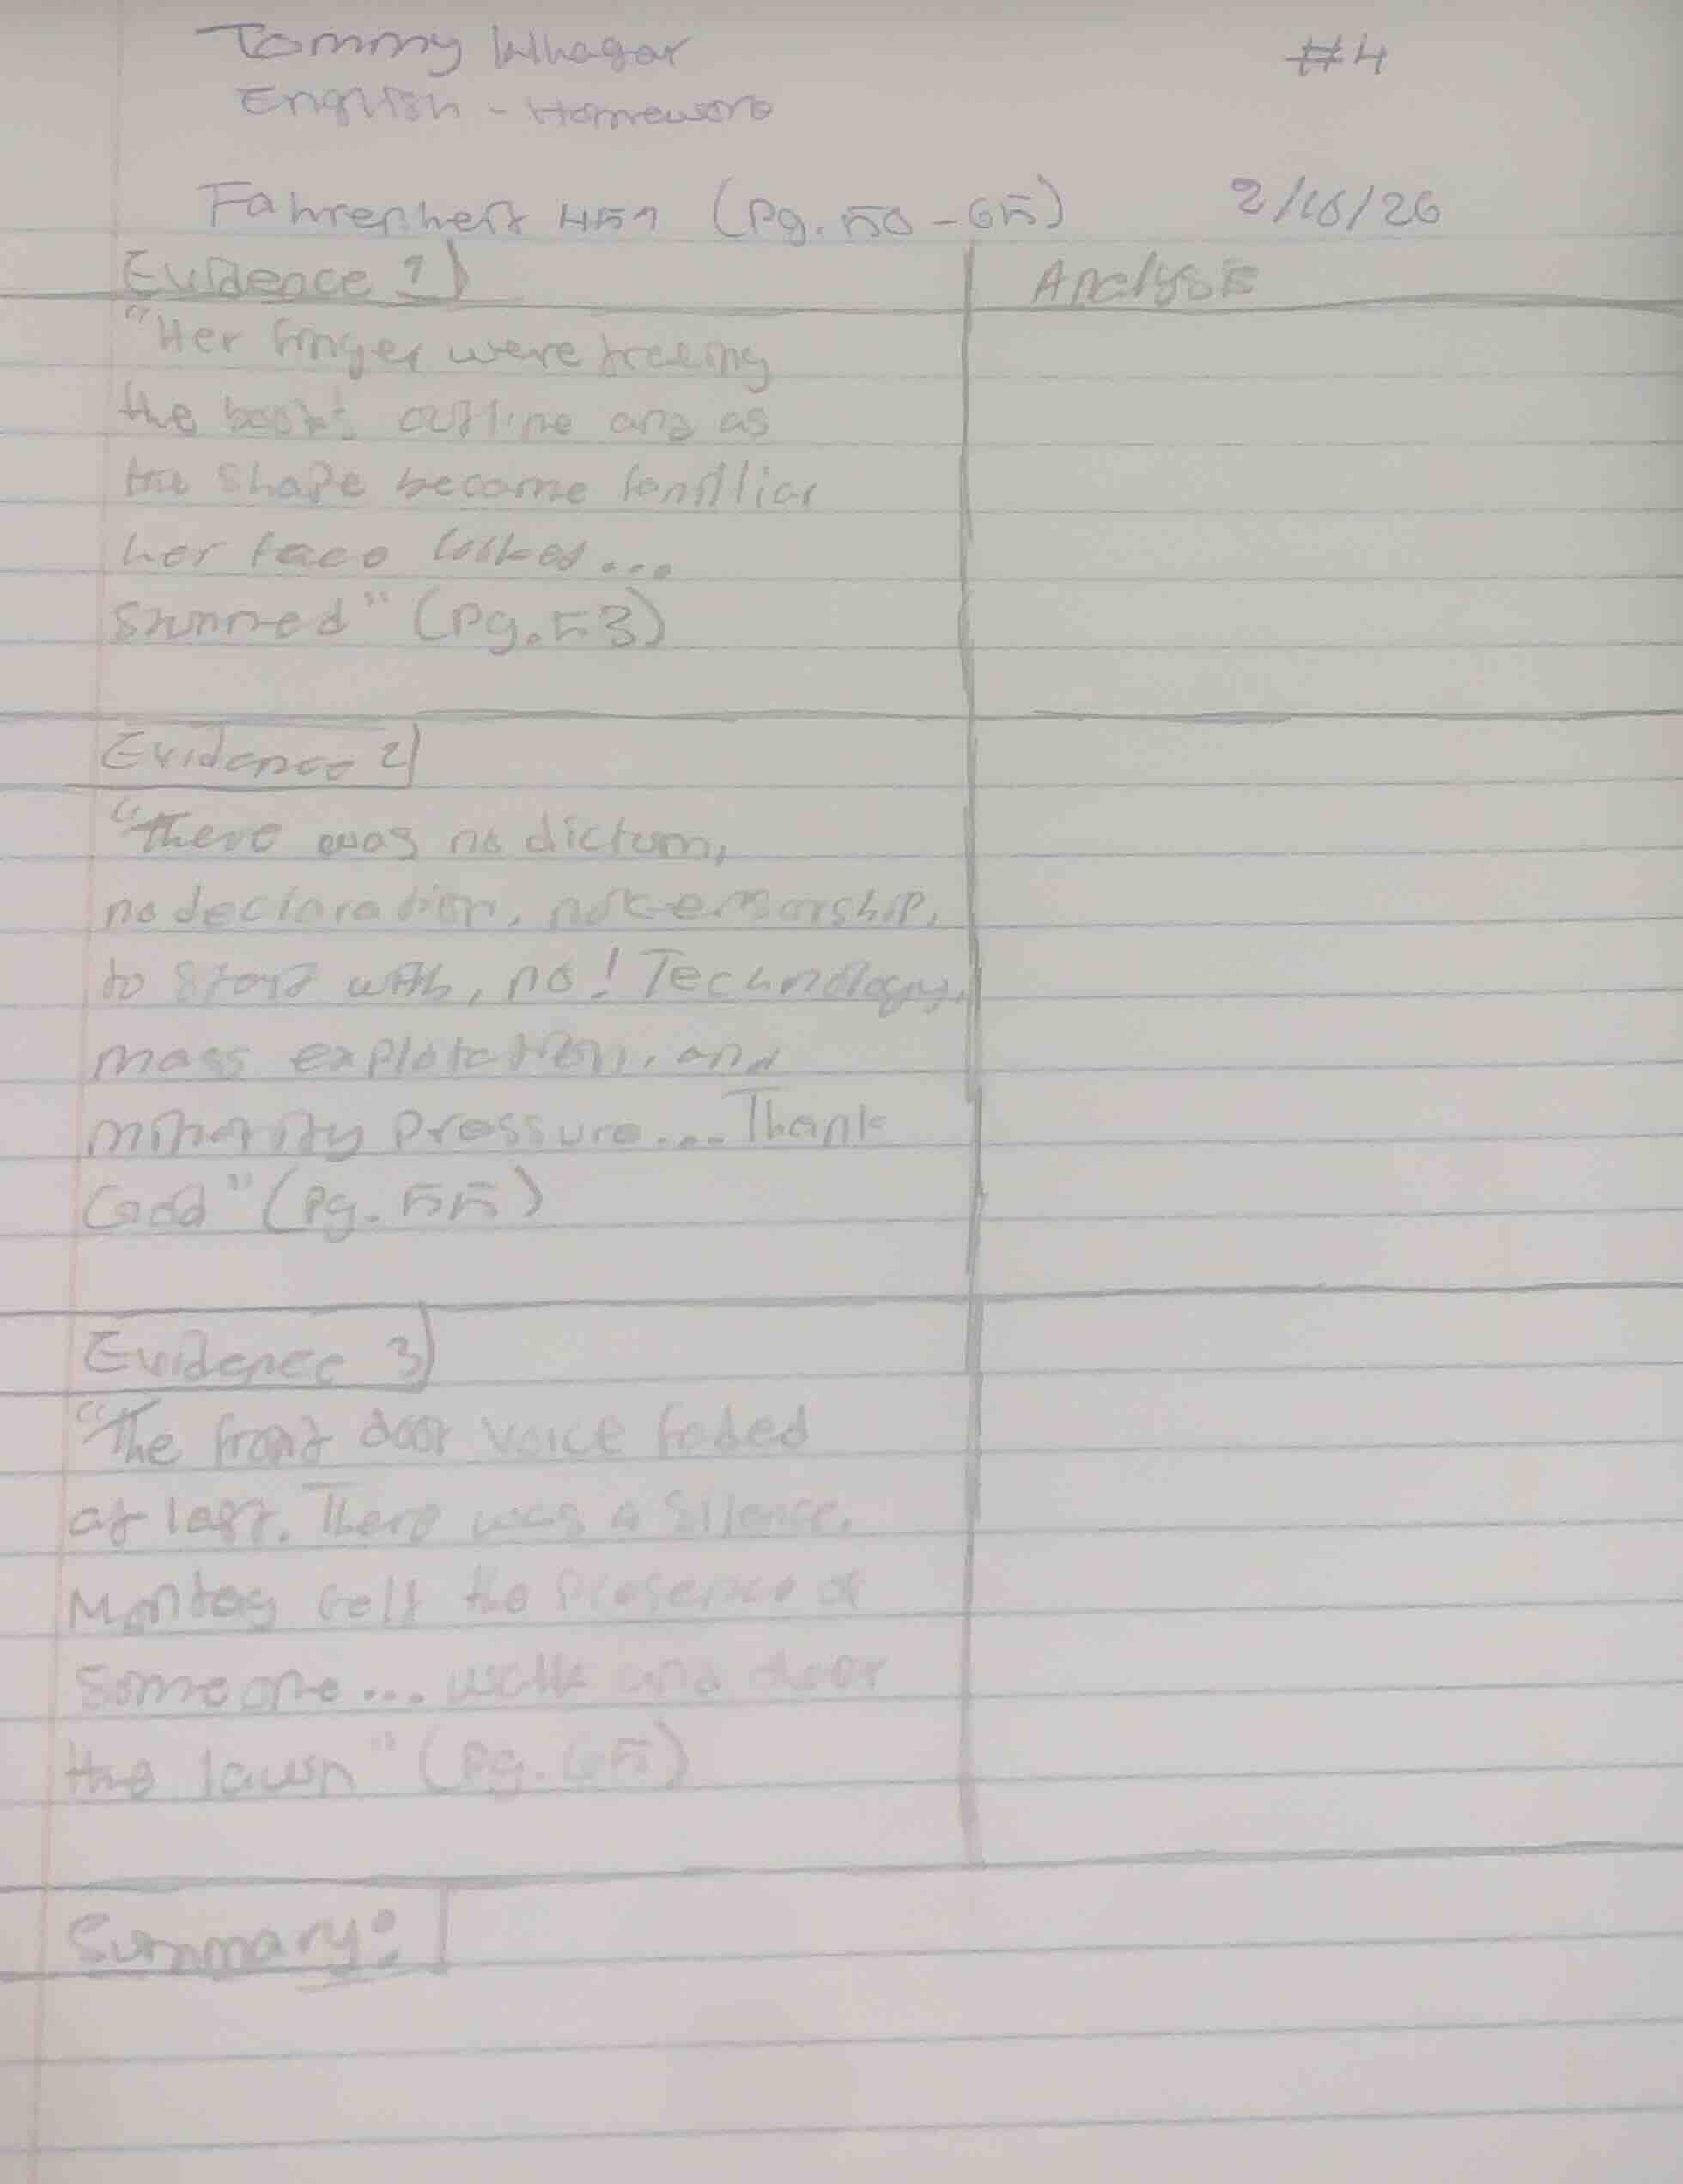 Tommy Whagar #4
English - Homework
Fahrenheit 451 (Pg. 50 - 65) 2/16/26
Evidence 1) Analysis
"Her finger were freeing
the book's outline and as
the shape become familliar
her face looked...
stunned" (Pg. 53)
Evidence 2)
"There was no dictum,
no declaration, no censorship,
to start with, no! Technology,
mass explotation, and
minority pressure... Thank
God" (Pg. 55)
Evidence 3)
"The front door voice faded
at last. There was a silence.
Montag felt the presence of
someone... walk and door
the lawn" (Pg. 65)
Summary: